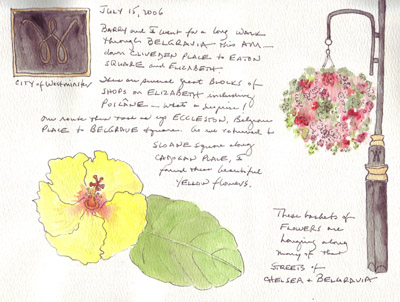 JULY 15, 2006
BARRY and I went for a long WALK
through BELGRAVIA this AM -
down CLIVEDEN PLACE to EATON
SQUARE and ELIZABETH
W
CITY of Westminster
There are several great BLOCKS of
SHOPS on ELIZABETH including
POILANE -
Our route then took us up ECCLESTON, Belgrave
PLACE to BELGRAVE Square. As we returned to
SLOANE square along
CADOGAN PLACE, I
found these beautiful
YELLOW flowers.
These baskets of
FLOWERS are
hanging along
many of the
STREETS of
CHELSEA & BELGRAVIA